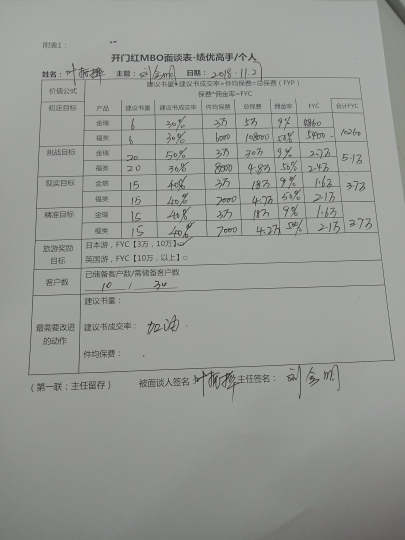 附表1：
开门红MBO面谈表-绩优高手/个人
姓名： 主管： 日期：2018.11.2
价值公式 建议书量*建议书成交率=件均保费=总保费（FYP）
保费*佣金率=FYC
初定目标 产品 建议书量 建议书成交率 件均保费 总保费 佣金率 FYC 合计FYC
金瑞 6 30% 3万 5万 9% 4860
福类 6 30% 6000 10800 50% 5400 10260
挑战目标 金瑞 20 50% 3万 30万 9% 2.7万
福类 20 30% 8000 4.8万 50% 2.4万 5.1万
现实目标 金瑞 15 40% 3万 18万 9% 1.6万
福类 15 40% 7000 4.2万 50% 2.1万 3.7万
精准目标 金瑞 15 40% 3万 18万 9% 1.6万
福类 15 40% 7000 4.2万 50% 2.1万 3.7万
旅游奖励目标 日本游，FYC【3万，10万】☑
英国游，FYC【10万，以上】□
客户数 已储备客户数/需储备客户数
10 / 30
最需要改进的动作 建议书量：
建议书成交率： 加油
件均保费：
（第一联：主任留存） 被面谈人签名： 主任签名：